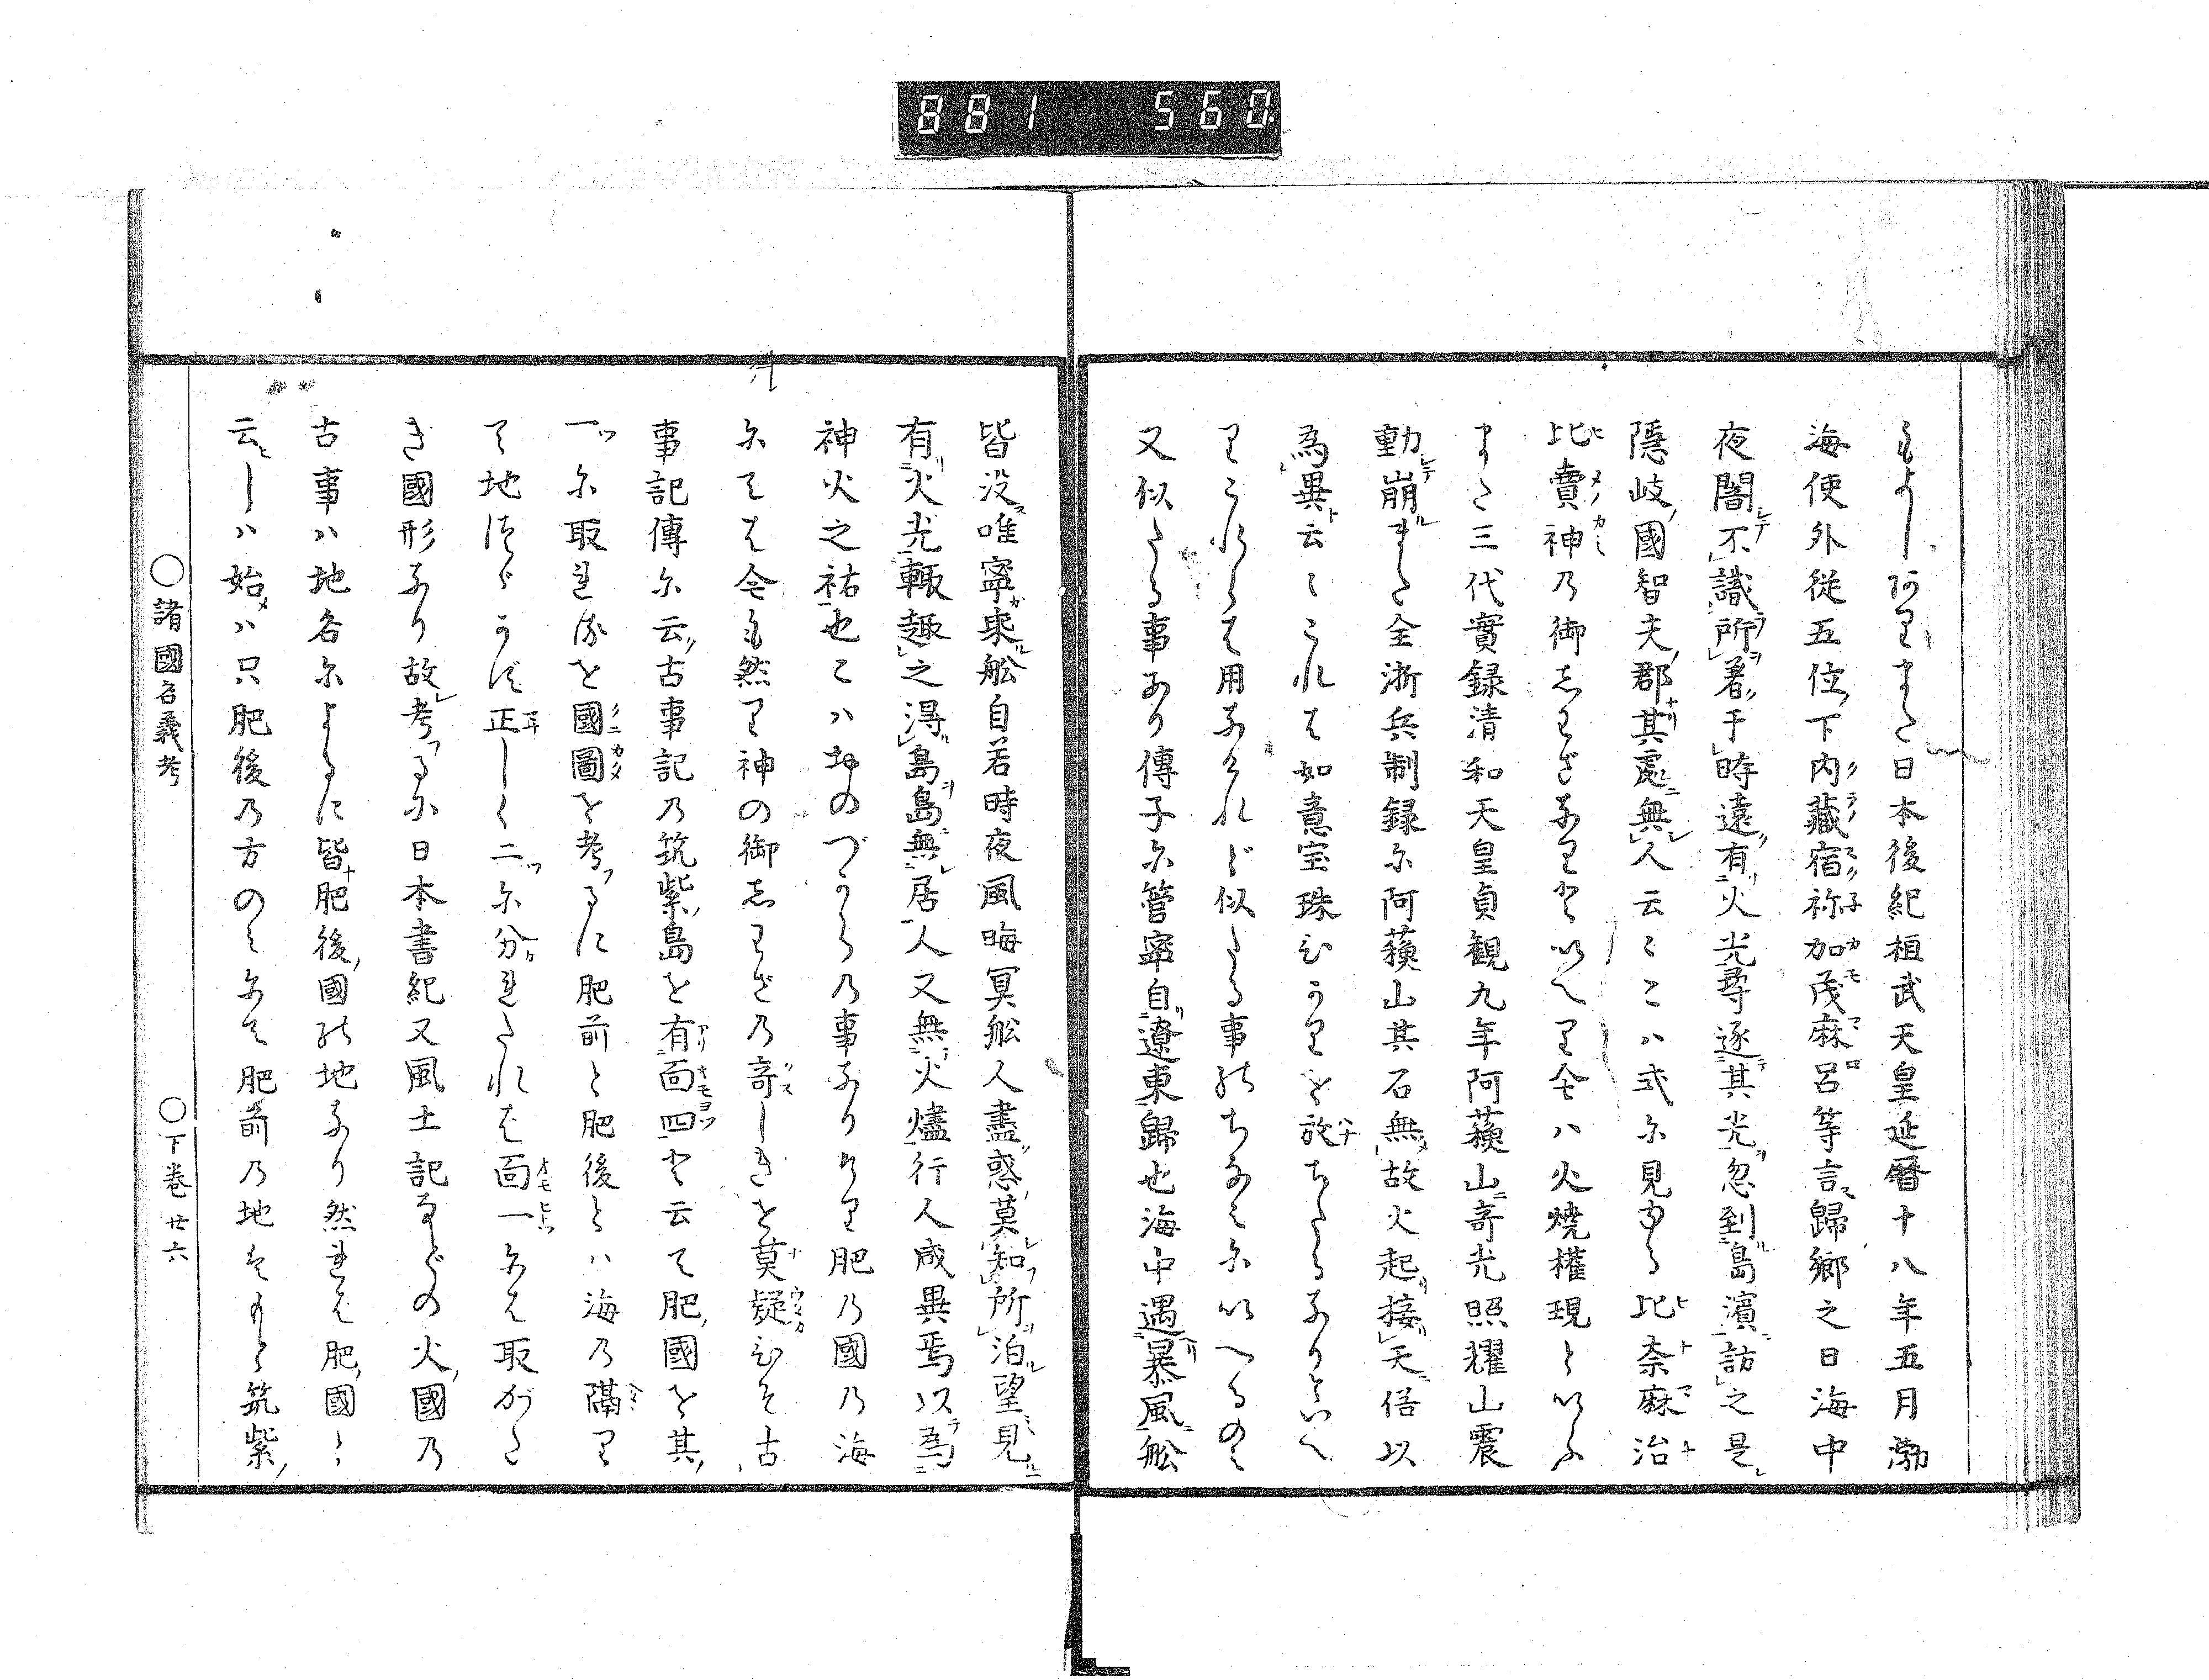 881 560
もよしありまた日本後紀桓武天皇延暦十八年五月渤
海使外従五位下内藏宿祢加茂麻呂等言歸郷之日海中
夜闇不識所着于時遠有火光尋逐其光忽到島濱訪之是
隠岐國智夫郡其處無人云〻こハ式尓見ゆる比奈麻治
比賣神乃御志わざなりと以へり今ハ火燒權現といふ
また三代實録清和天皇貞觀九年阿蘓山奇光照耀山震
動崩また全浙兵制録尓阿蘓山其石無故火起接天俗以
為異云〻これは如意宝珠ひかりを放ちたるなりといへ
りこれらは用なけれど似たる事のちなみに以へるのミ
又似たる事あり傳子尓管寧自遼東歸也海中遇暴風舩
皆没唯寧乘舩自若時夜風晦冥舩人盡惑莫知所泊望見
有火光輙趣之得島島無居人又無火燼行人咸異焉以為
神火之祐也こハおのづから乃事なりけり肥乃國乃海
尓ては今も然り神の御志わざ乃奇しきを莫疑ひそ古
事記傳尓云古事記乃筑紫島を有面四と云て肥國を其
一尓取れるを國圖を考るに肥前と肥後とハ海乃隔り
て地つゞかず正しく二尓分れたれば面一尓は取がた
き國形なり故考るに日本書紀又風土記などの火國乃
古事ハ地名尓よるに皆肥後國の地なり然れば肥國と
云しハ始ハ只肥後乃方のミ尓て肥前乃地はもと筑紫
○諸國名義考 ○下巻 廿六